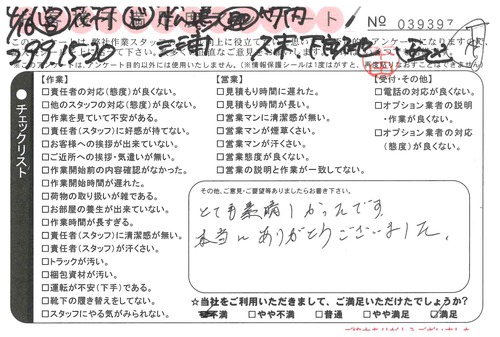 No 039397
チェックリスト
【作業】
□責任者の対応(態度)が良くない。
□他のスタッフの対応(態度)が良くない。
□作業を見ていて不安がある。
□責任者(スタッフ)に好感が持てない。
□お客様への挨拶が出来ていない。
□ご近所への挨拶・気遣いが無い。
□作業開始前の内容確認がなかった。
□作業開始時間が遅れた。
□荷物の取り扱いが雑である。
□お部屋の養生が出来ていない。
□作業時間が長すぎる。
□責任者(スタッフ)に清潔感が無い。
□責任者(スタッフ)が汗くさい。
□トラックが汚い。
□梱包資材が汚い。
□運転が不安(下手)である。
□靴下の履き替えをしてない。
□スタッフにやる気がみられない。
【営業】
□見積もり時間に遅れた。
□見積もり時間が長い。
□営業マンに清潔感が無い。
□営業マンが煙草くさい。
□営業マンが汗くさい。
□営業態度が良くない。
□営業の説明と作業が一致してない。
【受付・その他】
□電話の対応が良くない。
□オプション業者の説明
・作業が良くない。
□オプション業者の対応
(態度)が良くない。
その他、ご意見・ご要望等ありましたらお書き下さい。
とても素晴しかったです。
本当にありがとうございました。
☆当社をご利用いただきまして、ご満足いただけたでしょうか?
□不満 □やや不満 □普通 □やや満足 ☑満足